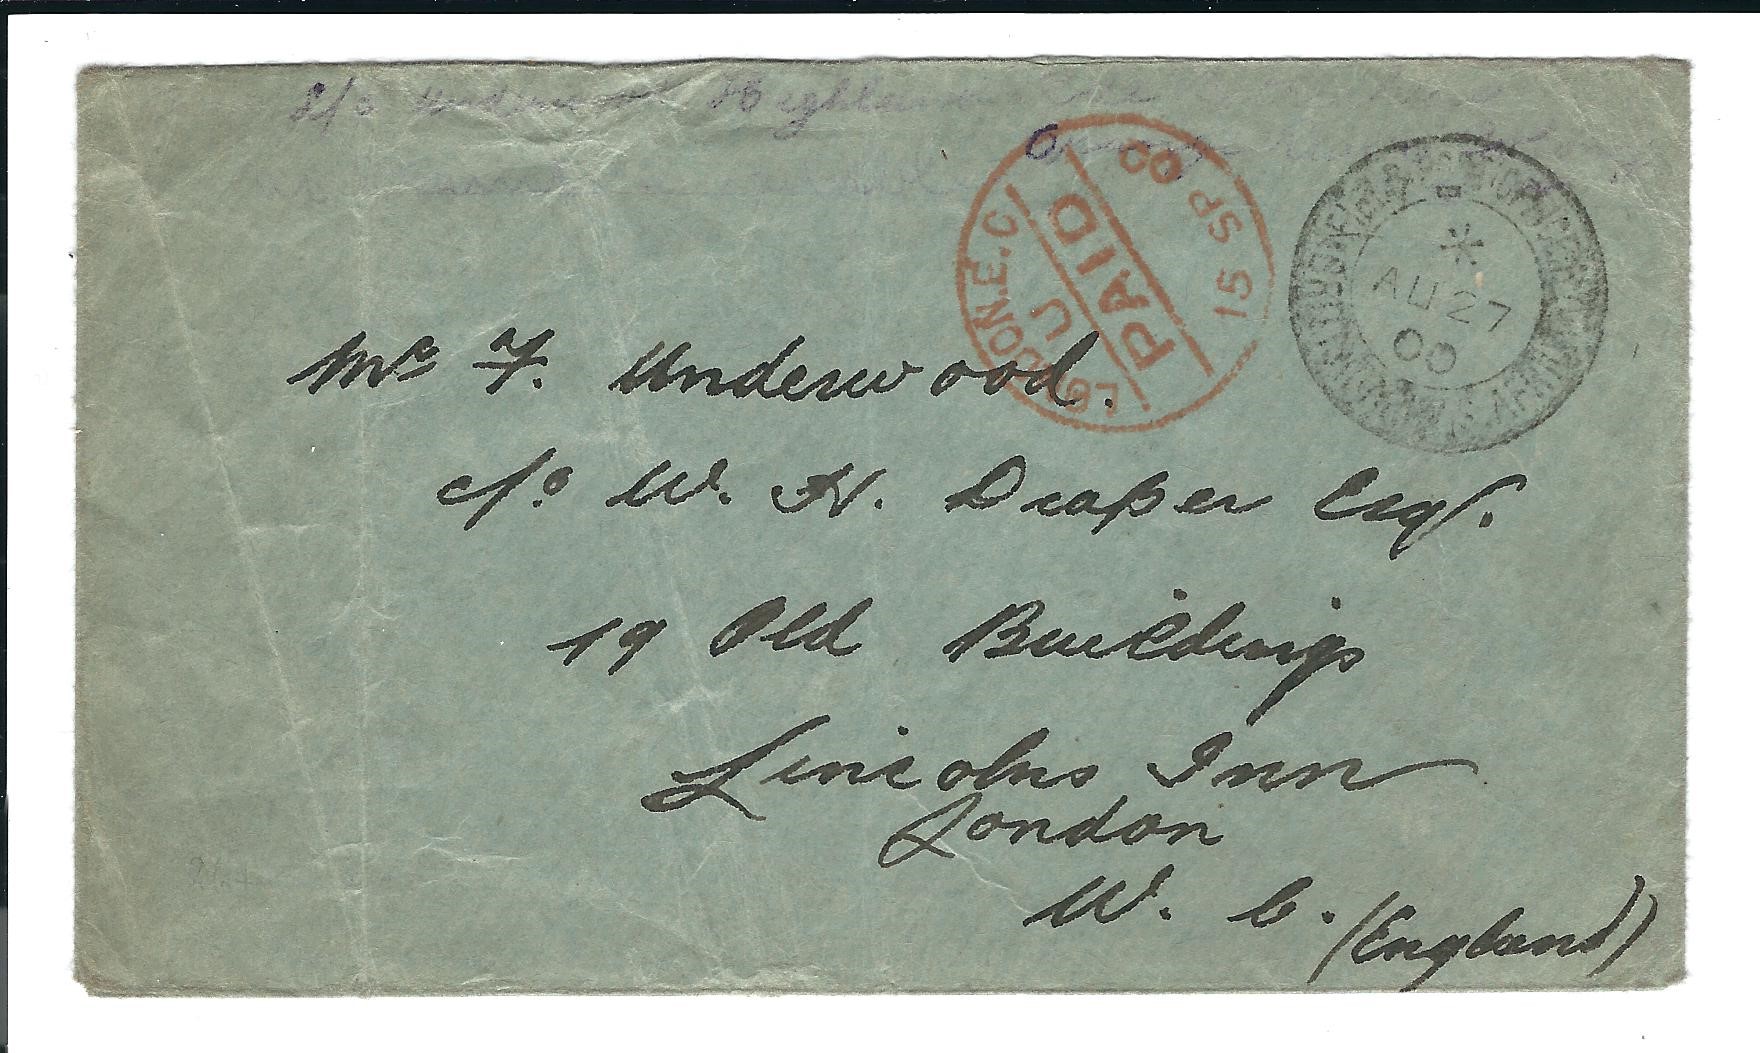 Highland
LONDON.E.C.
U
PAID
15 SP 00
ARMY POST OFFICE
*
AU 27
00
Mr F. Underwood.
c/o W. H. Draper Esqr.
19 Old Buildings
Lincolns Inn
London
W. C. (England)